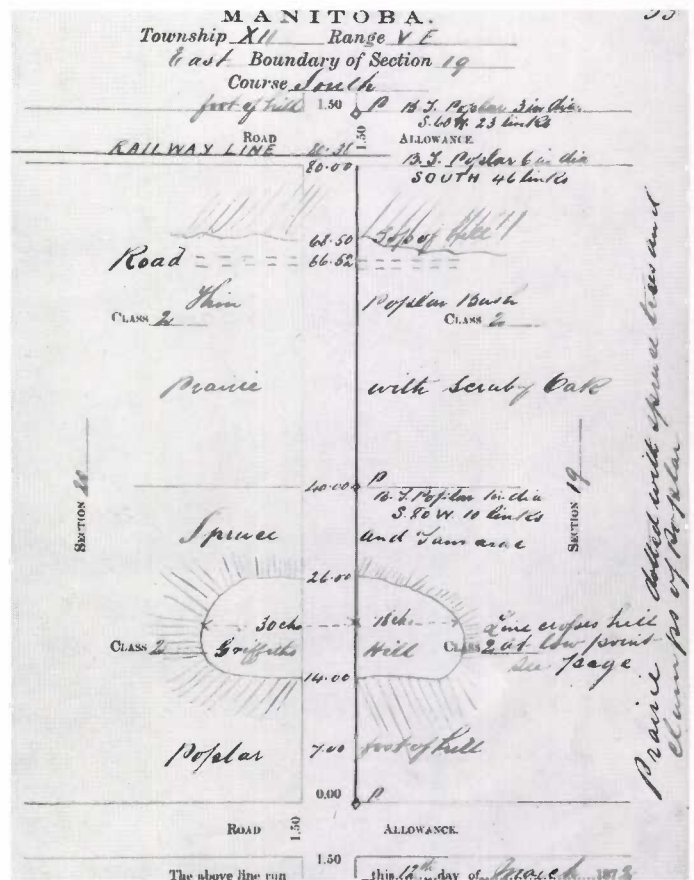 53
MANITOBA.
Township XII Range V E
East Boundary of Section 19
Course South
foot of hill 1.50 P B.T. Poplar 3 in dia
S.60 W. 23 links
ROAD 1.50 ALLOWANCE
RAILWAY LINE
80.00 B.T. Poplar 6 in dia
SOUTH 46 links
68.50 Top of Hill
Road 66.52
Thin Poplar Bush
CLASS 2 CLASS 2
Prairie with Scruby Oak
SECTION 20
SECTION 19
40.00 P
B.T. Poplar in dia
S.80 W. 10 links
Spruce and Tamarac
26.00
30 ch. 18 ch. Line crosses hill
CLASS 2 Griffiths Hill CLASS 2 at low point
see page
14.00
Poplar 7.00 foot of hill
0.00 P
ROAD 1.50 ALLOWANCE.
1.50
The above line run this 12th day of March 187
Prairie dotted with spruce trees and
clumps of Poplar